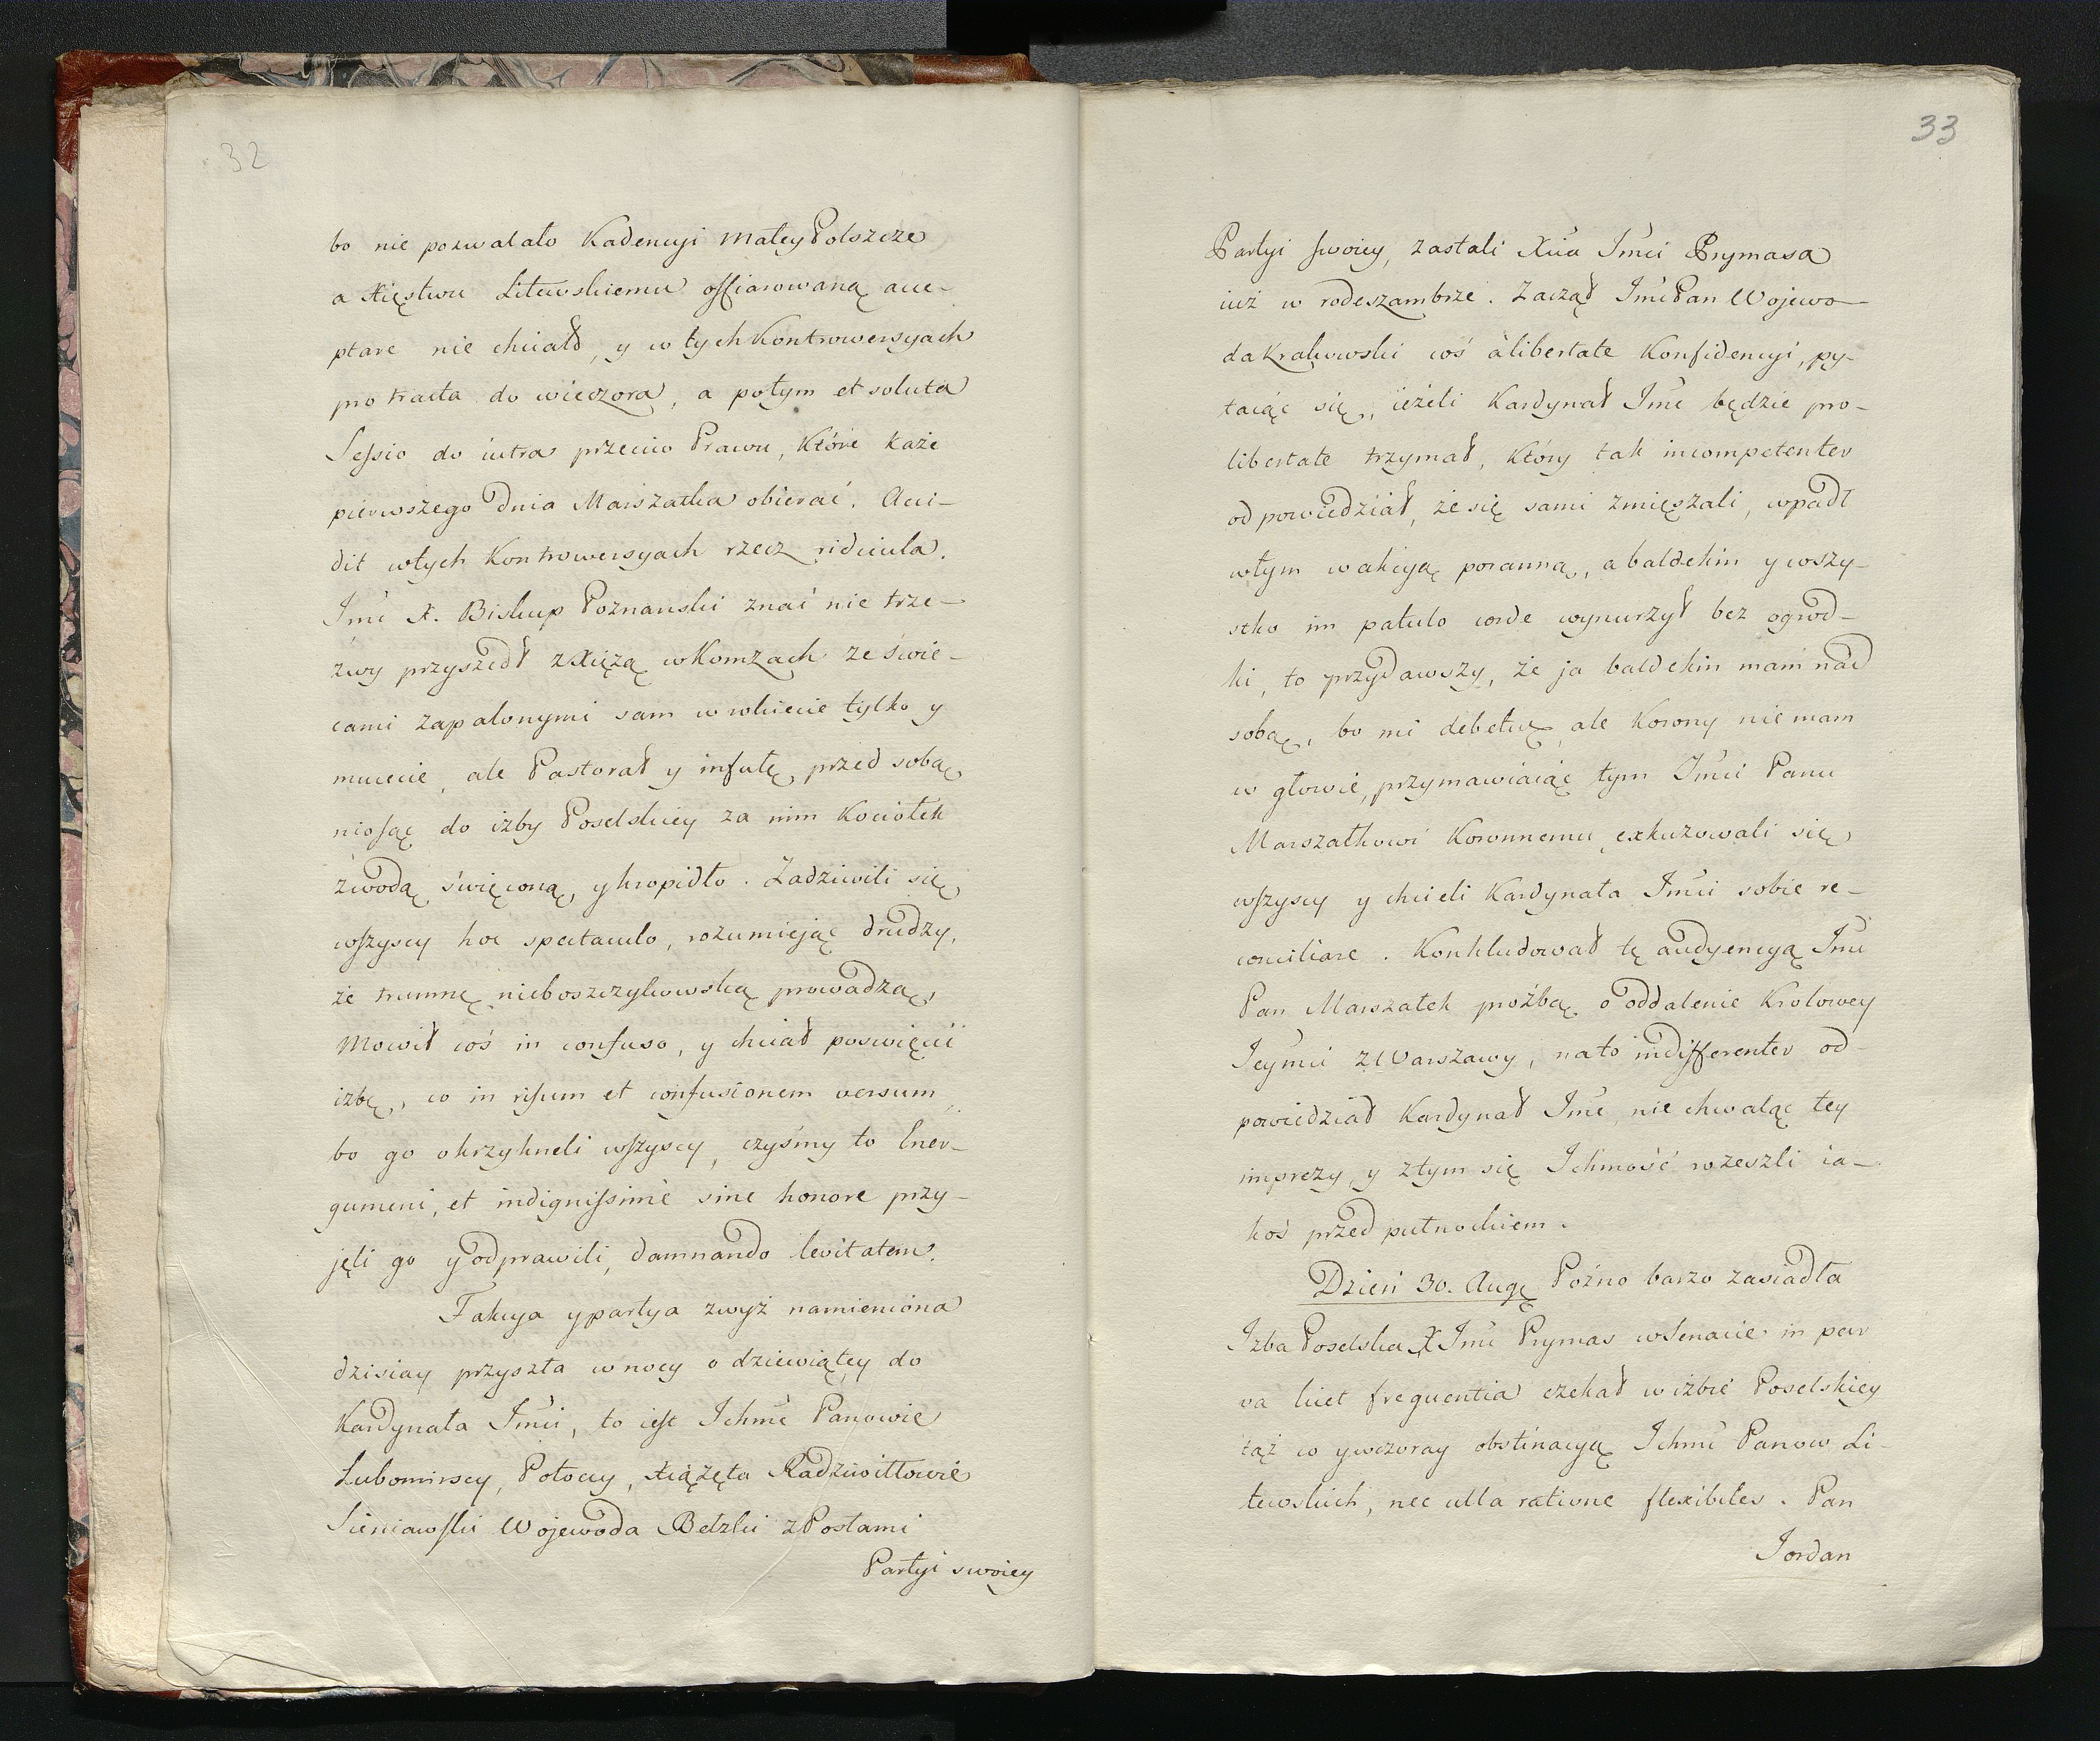 32
bo nie pozwalało Kadencyi MałeyPolszcze
a Xięstwu Litewskiemu offiarowaną acce-
ptare nie chciał, y w tych Kontrowersyach
protracta do wieczora, a potym et soluta
Sessio do iutra przeciw Prawu, Które każe
pierwszego Dnia Marszałka obierać. Acci-
dit wtych Kontrowersyach rzecz ridicula.
Jmć X. Biskup Poznanski znać nie trze-
źwy przyszedł z Xiężą w Komzach ze świe-
cami zapalonymi sam w rokiecie tylko y
mucecie, ale Pastorał y infułę przed sobą
niosąc do izby Poselskiey za nim Kociołek
zwodą święconą, y kropidło. Zadziwili się
wszyscy hoc spectaculo, rozumiejąc drudzy,
że trumnę nieboszczykowską prowadzą,
Mowił coś in confuso, y chciał poswięcić
izbę, co in risum et confusionem versum,
bo go okrzykneli wszyscy, czyśmy to Ener-
gumeni, et indignissime sine honore przy-
jęli go y odprawili, damnando levitatem.
Fakcya y partya zwyż namieniona
dzisiay przyszła w nocy o dziewiątey do
Kardynała Jmci, to iest Ichmć Panowie
Lubomirscy, Potoccy, Xiążęta Radziwiłłowie
Sieniawski Wojewoda Bełzki z Posłami
Partyi swoiey
33
Partyi swoiey, zastali Xcia Jmci Prymasa
iuż w rodeszambrze. Zaczął Jmć Pan Wojewo-
da Krakowski coś à libertate Konfidencyi, py-
taiąc się, ieżeli Kardynał Jmć będzie pro-
libertate trzymał, Który tak incompetenter
odpowiedział, że się sami zmięszali, wpadł
wtym w akcyą poranną, a baldekin y wszy-
stko im patulo corde wynurzył bez ogrod-
ki, to przydawszy, że ja baldekin mam nad
sobą, bo mi debetur, ale Korony nie mam
w głowie, przymawiaiąc tym Jmci Panu
Marszałkowi Koronnemu, exkuzowali się
wszyscy y chcieli Kardynała Jmci sobie re-
conciliare. Konkludował tę audyencyą Jmć
Pan Marszałek proźbą o oddalenie Krolowey
Jeymci z Warszawy, na to indifferenter od-
powiedział Kardynał Jmć, nie chwaląc tey
imprezy, y z tym się Ichmość rozeszli ia-
koś przed putnockiem.
Dzień 30. Augę Poźno barzo zasiadła
Izba Poselska X Jmć Prymas w Senacie in par
va licet frequentia czekał w izbie Poselskiey
taż co y wczoray obstinacyą Ichmć Panow Li-
tewskich, nec ulla ratione flexibiles. Pan
Jordan